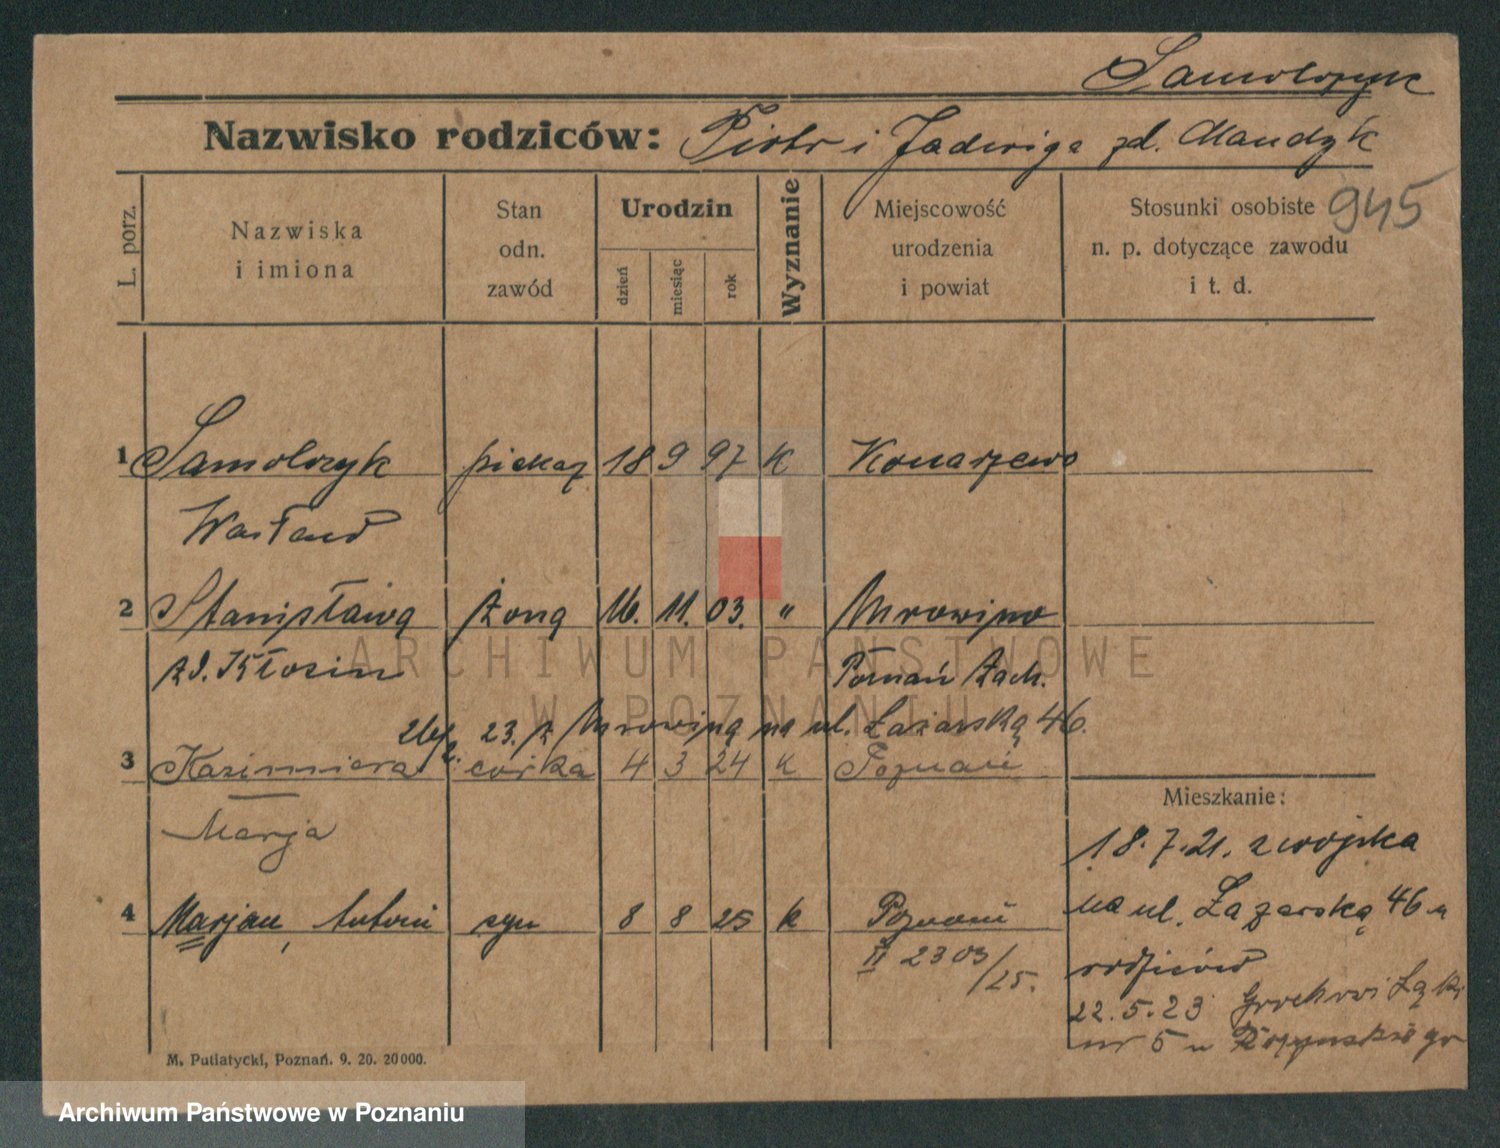 Samolczyk
Nazwisko rodziców: Piotr i Jadwiga zd. Mandzyk
945
L. porz.
Nazwiska
i imiona
Stan
odn.
zawód
Urodzin
dzień
miesiąc
rok
Wyznanie
Miejscowość
urodzenia
i powiat
Stosunki osobiste
n. p. dotyczące zawodu
i t. d.
1 Samolczyk piekaz 18 9 97 k Konarzewo
Wacław
2 Stanisława żona 16. 11. 03. " Mrowino
zd. Kłosin Poznań Zach.
23. z Mrowina na ul. Łazarską 46.
3 Kazimiera córka 4 3 24 k Poznań
Marja
4 Marjan, Antoni syn 8 8 25 k Poznań
II 2303/25.
Mieszkanie:
18.7.21. z wojska
na ul. Łazarską 46 u
rodziców
22.5.23 Grochowe Łąki
nr 5 u
M. Putiatycki, Poznań. 9. 20. 20000.
ARCHIWUM PAŃSTWOWE
W POZNANIU
Archiwum Państwowe w Poznaniu